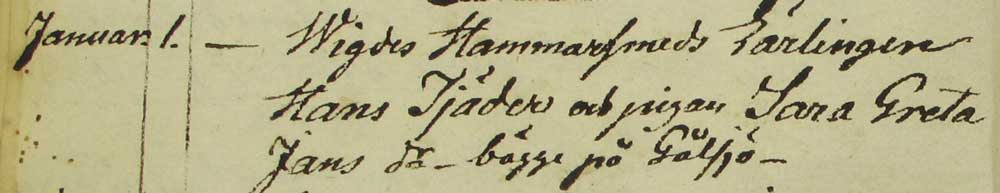 Januari 1. — Wigdes Hammarsmeds Lärlingen
Hans Tjäder och pigan Sara Greta
Jans dr – bägge på Gälsjö –